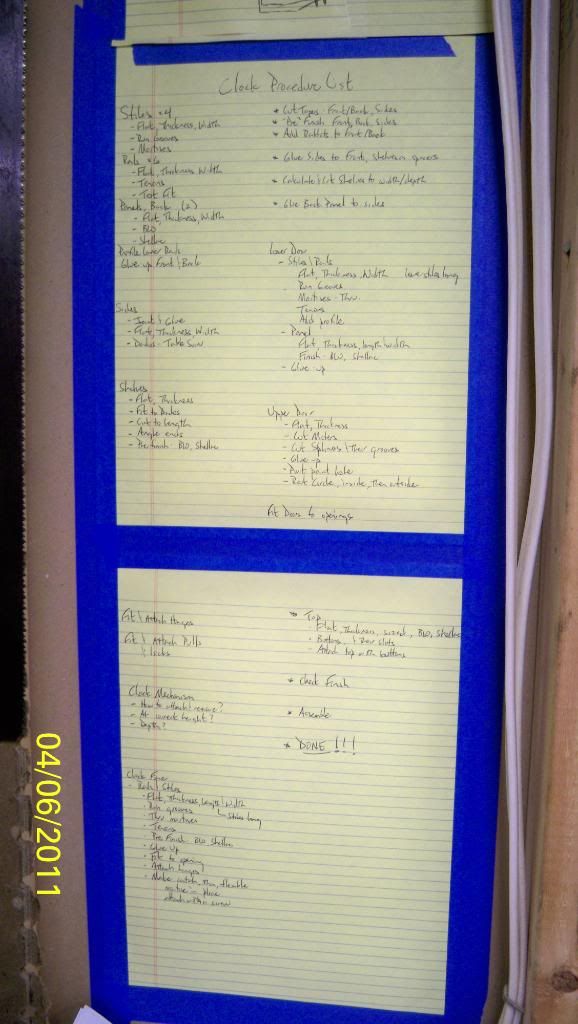 Clock Procedure List
Stiles x4
- Flat, Thickness, Width
- Run Grooves
- Mortises
Rails x6
- Flat, Thickness Width
- Tenons
- Test Fit
Panels, Back (2)
- Flat, Thickness, Width
- BLO
- Shellac
Profile Lower Rails
Glue up Front \ Back
Sides
- Joint \ Glue
- Flat, Thickness Width
- Dados - Table Saw
Shelves
- Flat, Thickness
- Fit to Dados
- Cut to length
- Angle ends
- BLO, Shellac
* Cut Tapes Front/Back, Sides
* "Pre" Finish Front, Back, Sides
* Add Rabbits to Front/Back
* Glue Sides to Front, shelves as spacers
* Calculate \ Cut Shelves to width/depth
* Glue Back Panel to sides
Lower Door
- Stiles \ Rails
Flat, Thickness, Width leave stiles long
Run Grooves
Mortises - Thru
Tenons
Add profile
- Panel
Flat, Thickness, length width
Finish - BLO, Shellac
- Glue-up
Upper Door
- Flat, Thickness
- Cut Miters
- Cut Splines \ Their grooves
- Glue-up
- Put pivot hole
- Rout Circle, inside, then outside
Fit Doors to openings
Fit \ Attach Hinges
Fit \ Attach Pulls
\ locks
Clock Mechanism
- How to attach \ remove?
- At correct height?
- Depth?
Clock Face
- Rails \ Stiles
- Flat, Thickness, Length \ Width
Stiles long
- Run grooves
- Thru mortises
- Tenons
- Pre Finish BLO Shellac
- Glue Up
- Fit to opening
- Attach hinges
- Make catch, thin, flexible
in place
attach with a screw
* Top
- Flat, Thickness, sized, BLO, Shellac
- Buttons \ Their slots
- Attach top with buttons
* Check Finish
* Assemble
* DONE!!!
04/06/2011